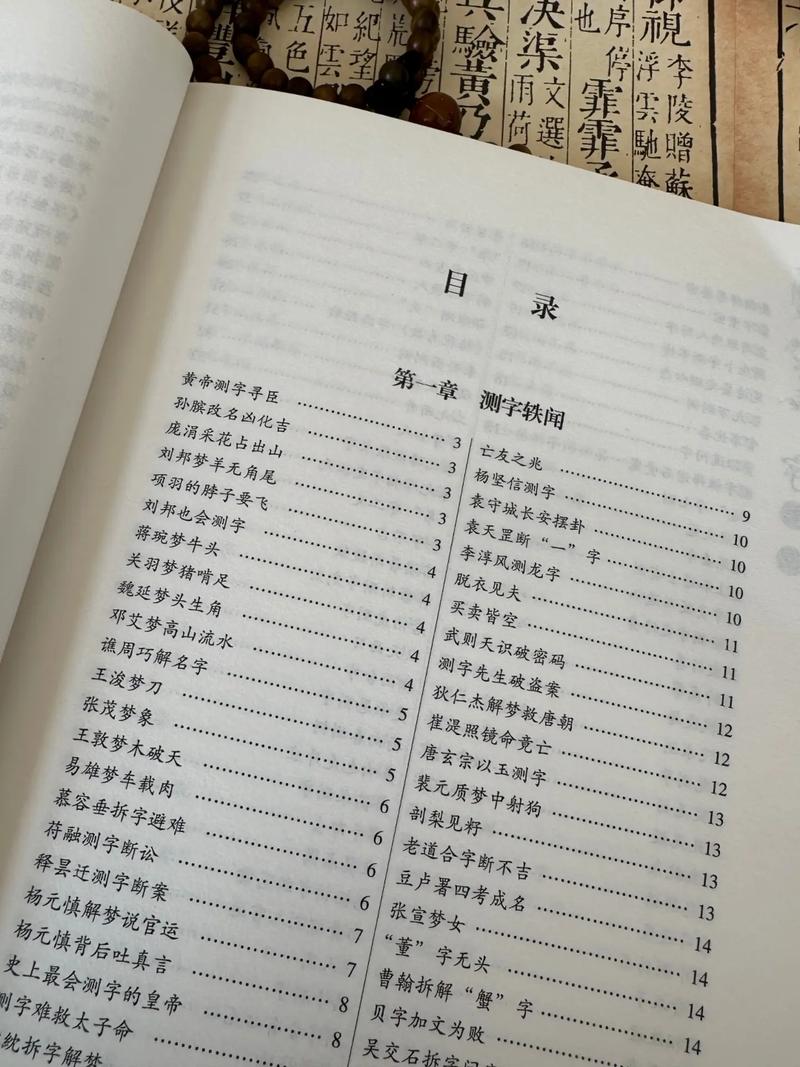 李陵贈蘇
浮雲馳奄
序停
霏霏
也
决渠
文選
雨荷
驗黄乃
紀望
如雲
五色
目 录
第一章 测字轶闻
黄帝测字寻臣 ……………… 3
孙膑改名凶化吉 ……………… 3
庞涓采花占出山 ……………… 3
刘邦梦羊无角尾 ……………… 3
项羽的脖子要飞 ……………… 3
刘邦也会测字 ……………… 4
蒋琬梦牛头 ……………… 4
关羽梦猪啃足 ……………… 4
魏延梦头生角 ……………… 4
邓艾梦高山流水 ……………… 4
谯周巧解名字 ……………… 5
王浚梦刀 ……………… 5
张茂梦象 ……………… 5
王敦梦木破天 ……………… 6
易雄梦车载肉 ……………… 6
慕容垂拆字避难 ……………… 6
苻融测字断讼 ……………… 6
释昙迁测字断案 ……………… 7
杨元慎解梦说官运 ……………… 7
杨元慎背后吐真言 ……………… 8
史上最会测字的皇帝 ……………… 8
测字难救太子命 ………………
统拆字解梦
亡友之兆 ……………… 9
杨坚信测字 ……………… 10
袁守城长安摆卦 ……………… 10
袁天罡断“一”字 ……………… 10
李淳风测龙字 ……………… 10
脱衣见夫 ……………… 11
买卖皆空 ……………… 11
武则天识破密码 ……………… 11
测字先生破盗案 ……………… 12
狄仁杰解梦救唐朝 ……………… 12
崔湜照镜命竟亡 ……………… 12
唐玄宗以玉测字 ……………… 13
裴元质梦中射狗 ……………… 13
剖梨见籽 ……………… 13
老道合字断不吉 ……………… 13
豆卢署四考成名 ……………… 14
张宣梦女 ……………… 14
“董”字无头 ……………… 14
曹翰拆解“蟹”字 ………………
贝字加文为败 ………………
吴交石拆字